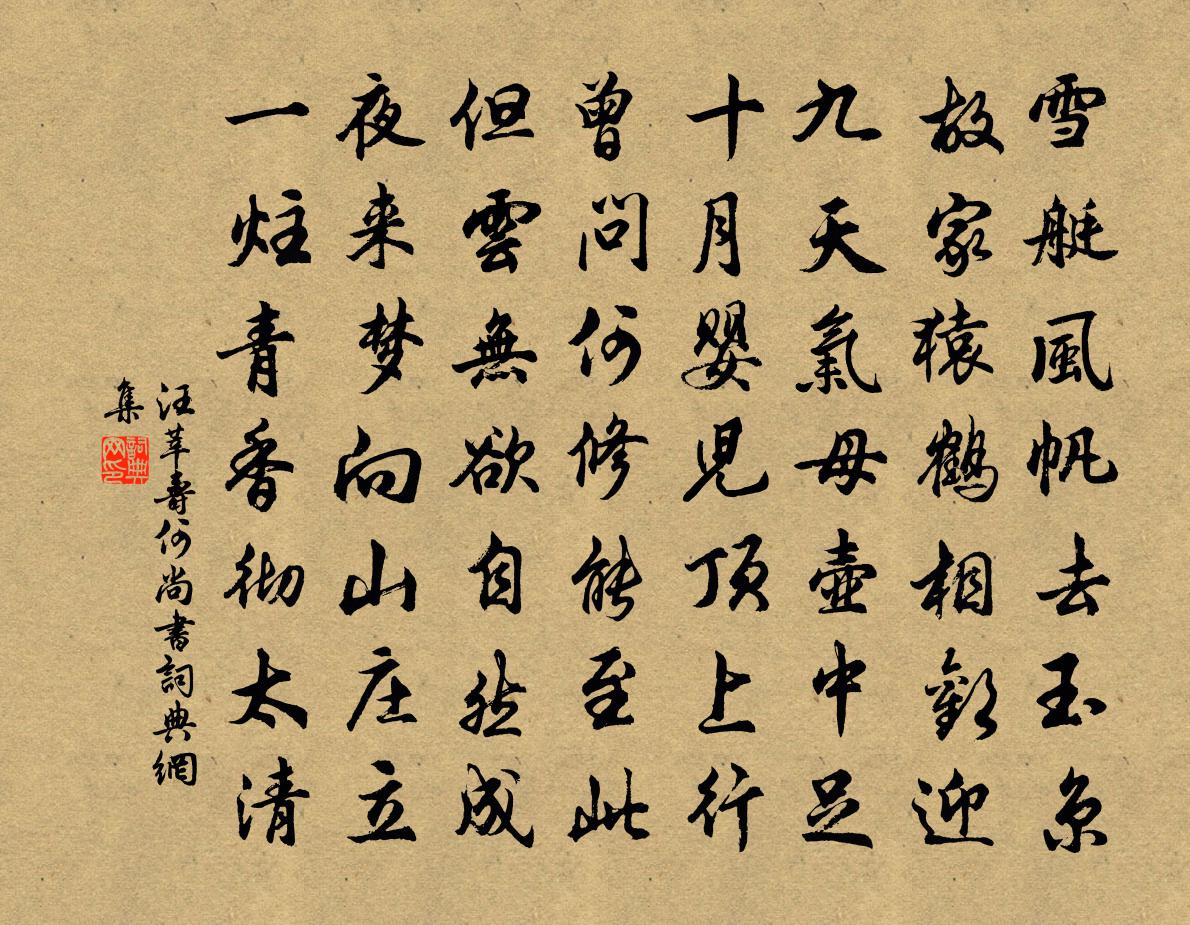 雪艇風帆去玉京
故家猿鶴相歡迎
九天氣母壺中足
十月嬰児頂上行
曾問何修能至此
但雲無欲自然成
夜来梦向山庄立
一炷青香彻太清
汪莘壽何尚書詞典網
集
詞典网印